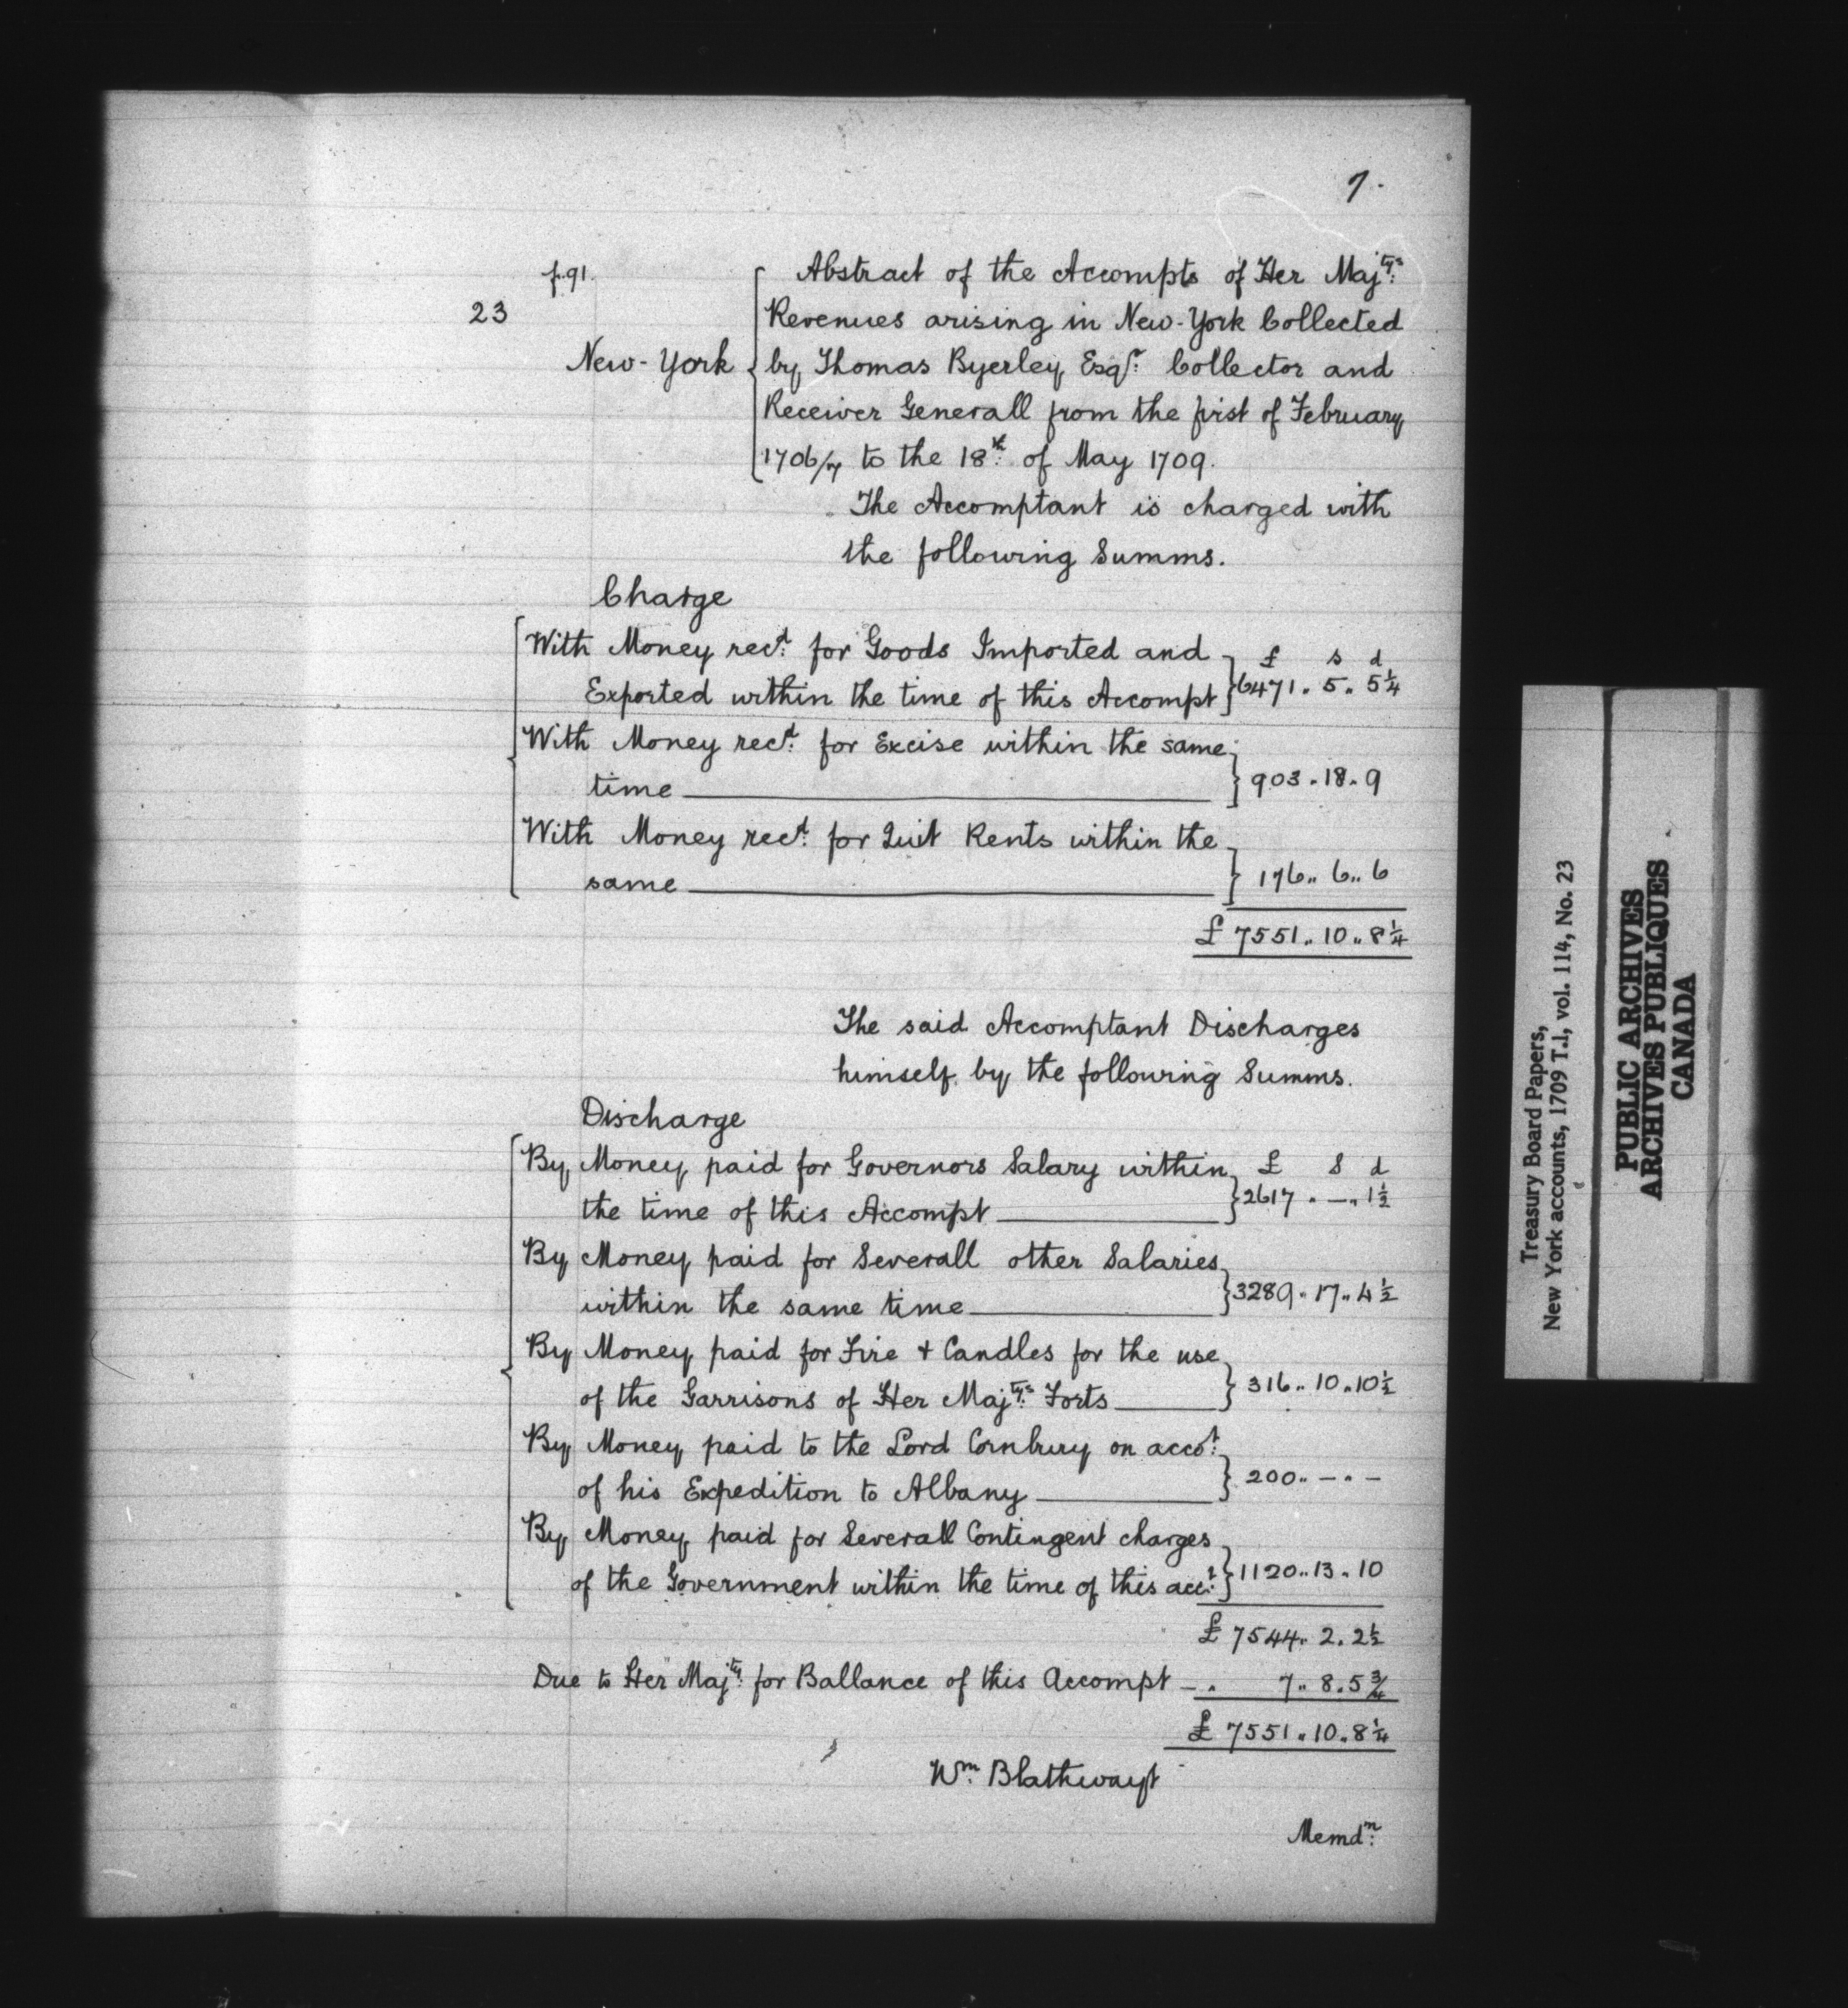 7.
p.91.
23
Abstract of the Accompts of Her Maj:tys
Revenues arising in New-York Collected
New-York by Thomas Byerley Esqr: Collector and
Receiver Generall from the first of February
1706/7 to the 18th: of May 1709.
The Accomptant is charged with
the following Summs.
Charge
With Money recd: for Goods Imported and £ s d
Exported within the time of this Accompt 6471 „ 5 „ 5¼
With Money recd: for Excise within the same
time 903 „ 18 „ 9
With Money recd: for Quit Rents within the
same 176 „ 6 „ 6
£ 7551 „ 10 „ 8¼
The said Accomptant Discharges
himself by the following Summs.
Discharge
By Money paid for Governors Salary within £ s d
the time of this Accompt 2617 „ — „ 1½
By Money paid for Severall other Salaries
within the same time 3289 „ 17 „ 4½
By Money paid for Fire + Candles for the use
of the Garrisons of Her Maj:tys Forts 316 „ 10 „ 10½
By Money paid to the Lord Cornbury on acco:t
of his Expedition to Albany 200 „ — „ —
By Money paid for Severall Contingent charges
of the Government within the time of this acc:t 1120 „ 13 „ 10
£ 7544 „ 2 „ 2½
Due to Her Maj:ty for Ballance of this Accompt — „ 7 „ 8 „ 5¾
£ 7551 „ 10 „ 8¼
Wm: Blathwayt
Memdm:
Treasury Board Papers,
New York accounts, 1709 T.1, vol. 114, No. 23
PUBLIC ARCHIVES
ARCHIVES PUBLIQUES
CANADA